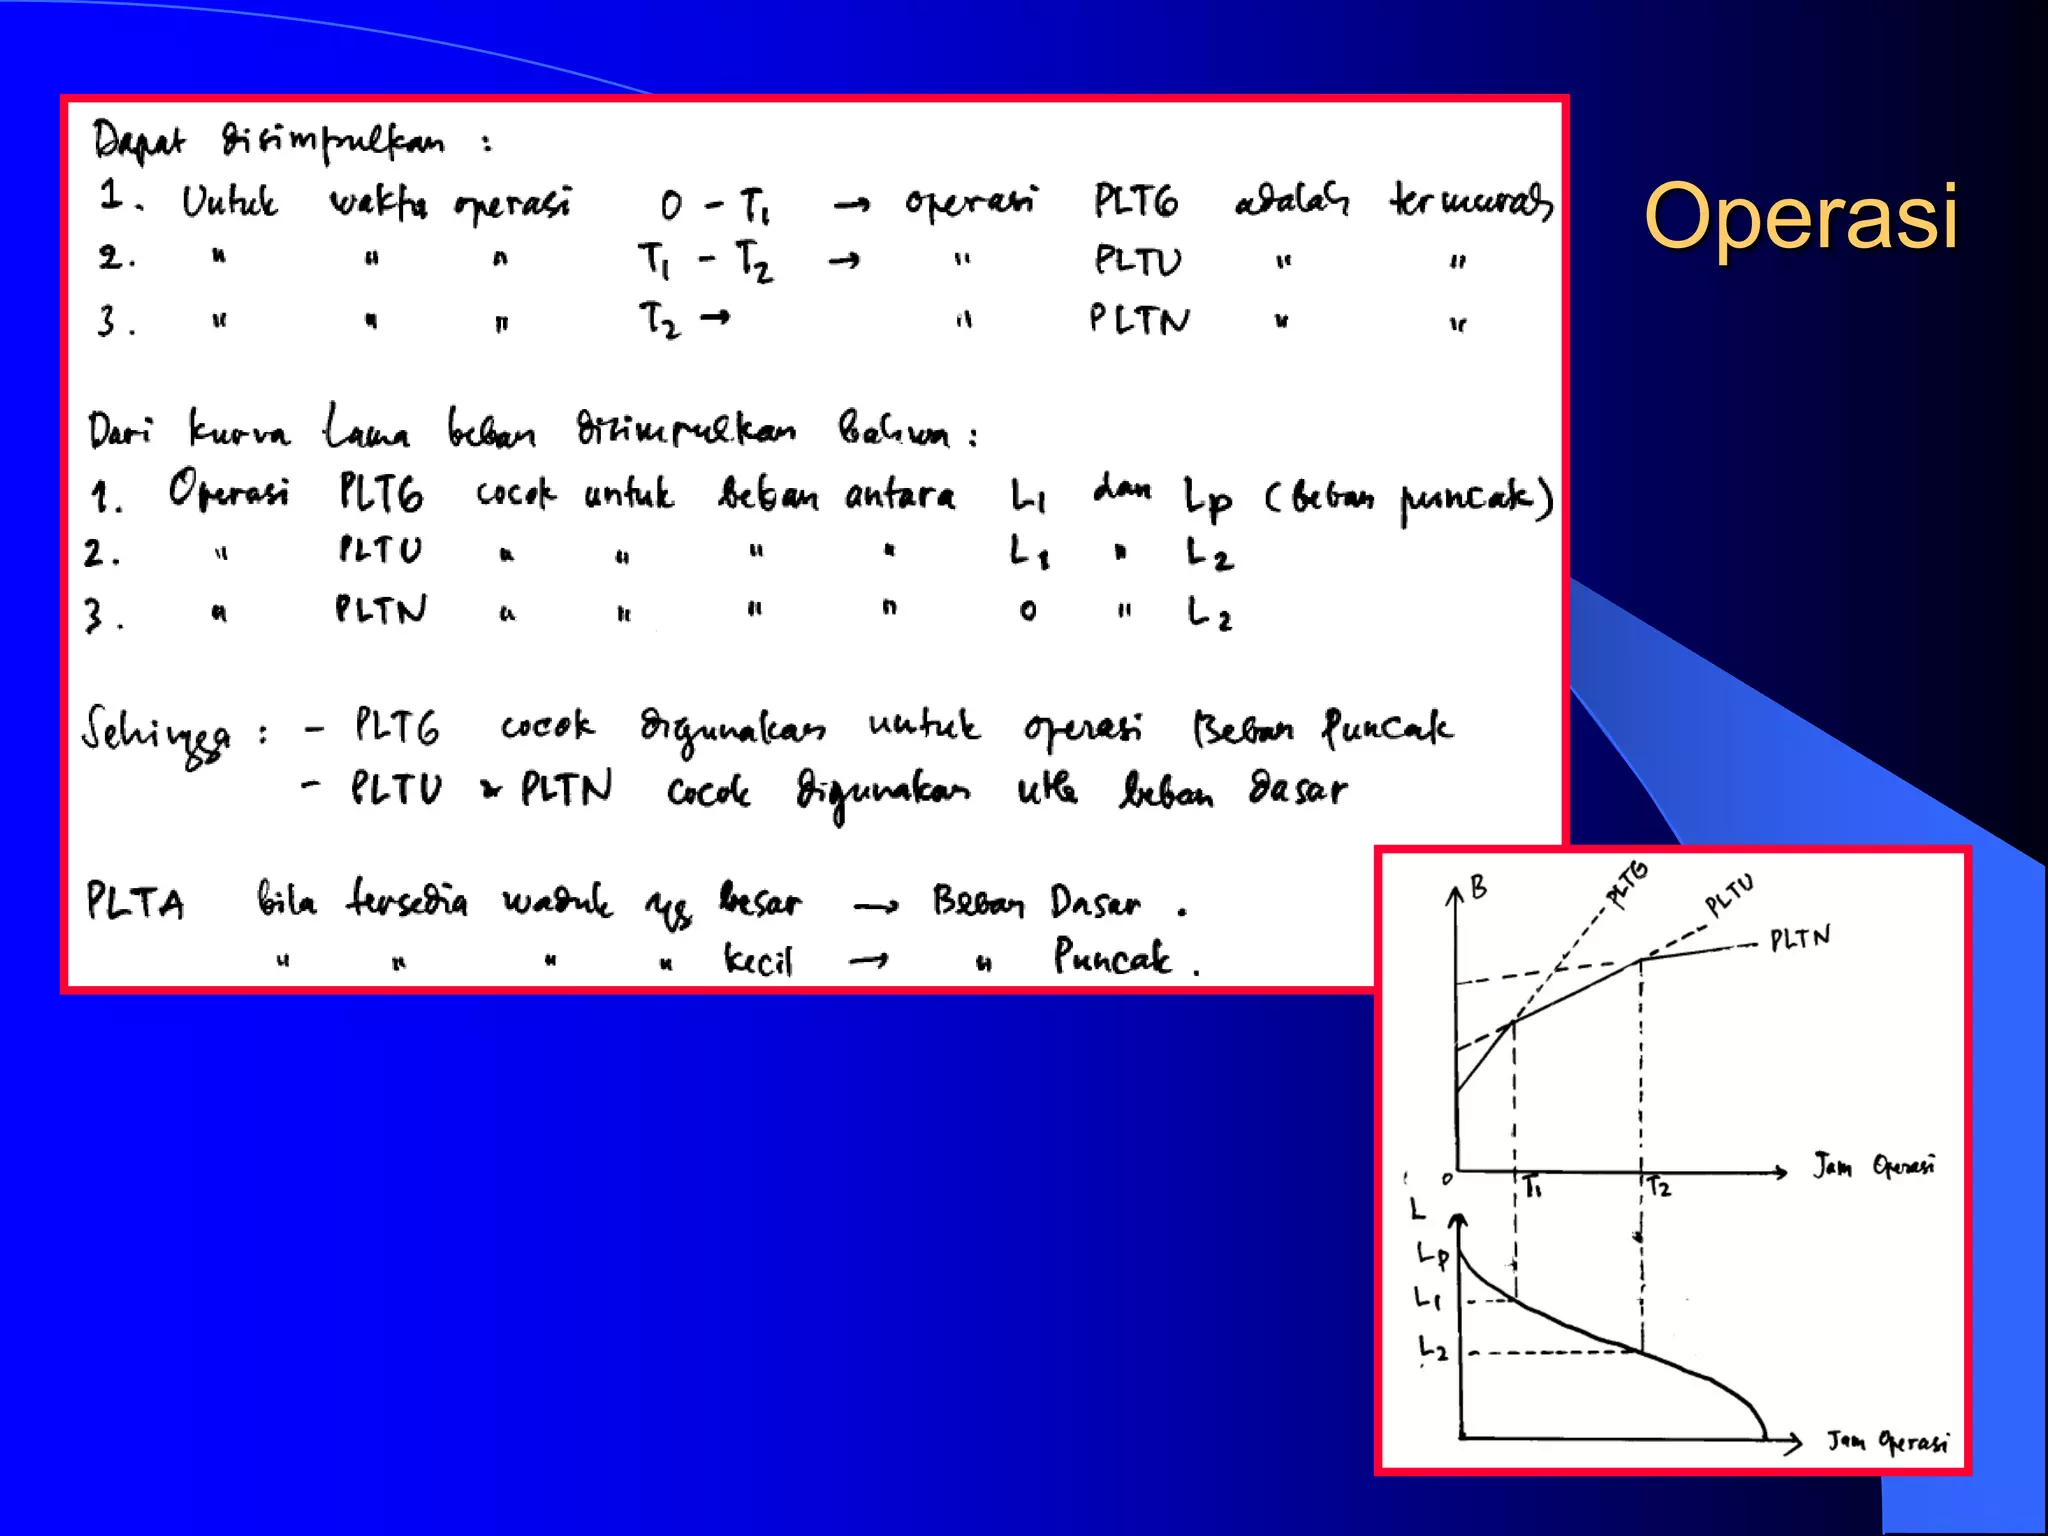 Operasi
Dapat disimpulkan :
1. Untuk waktu operasi 0 - T1 → operasi PLTG adalah termurah
2. " " " T1 - T2 → " PLTU " "
3. " " " T2 → " PLTN " "
Dari kurva Lama beban disimpulkan bahwa :
1. Operasi PLTG cocok untuk beban antara L1 dan Lp (beban puncak)
2. " PLTU " " " " L1 " L2
3. " PLTN " " " " 0 " L2
Sehingga : - PLTG cocok digunakan untuk operasi Beban Puncak
- PLTU & PLTN cocok digunakan utk beban dasar
PLTA bila tersedia waduk yg besar → Beban Dasar .
" " " " kecil → " Puncak .
B
PLTG
PLTU
PLTN
0 T1 T2 Jam Operasi
L
Lp
L1
L2
Jam Operasi